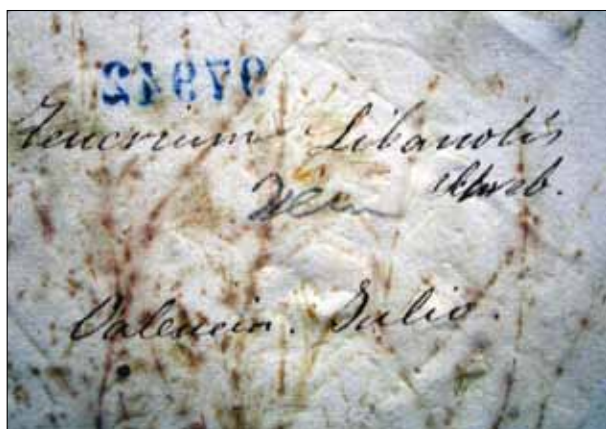 Teucrium Libanotis
Schreb.
Valencia. Julio.